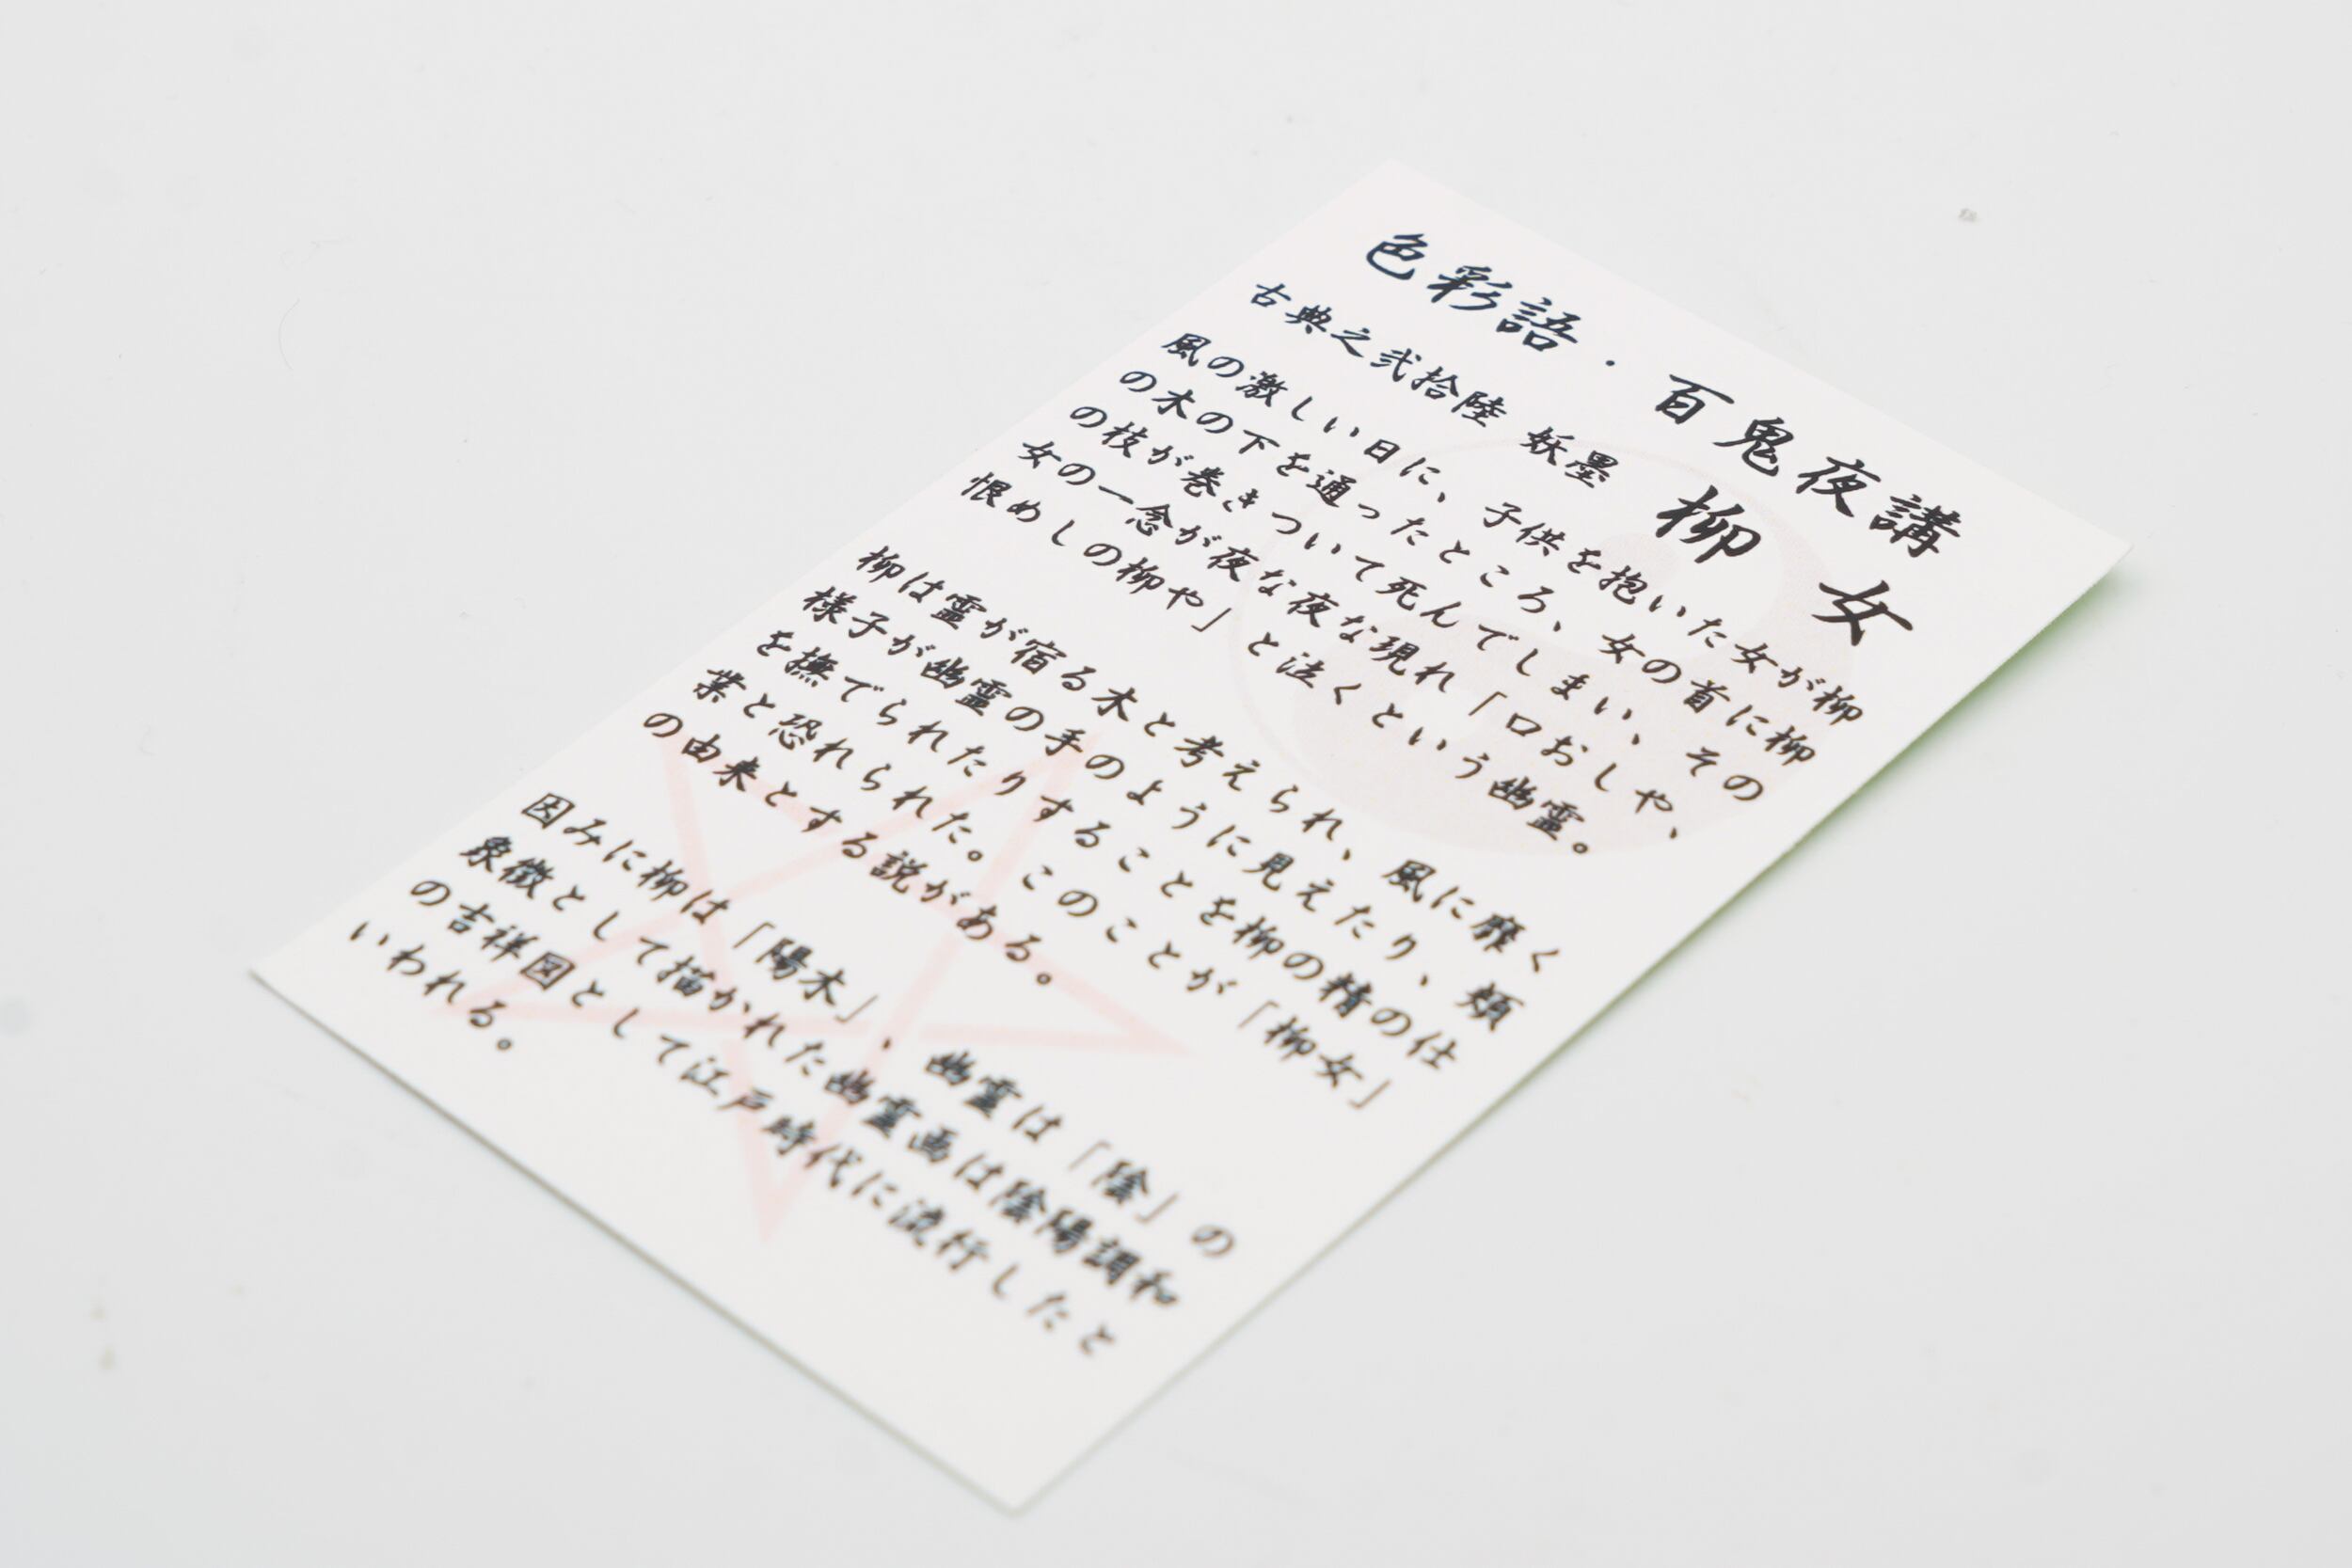 色彩語・百鬼夜講
古典之弐拾陸 妖墨 柳女
風の激しい日に、子供を抱いた女が柳
の木の下を通ったところ、女の首に柳
の枝が巻きついて死んでしまい、その
女の一念が夜な夜な現れ「口おしや、
恨めしの柳や」と泣くという幽霊。
柳は霊が宿る木と考えられ、風に靡く
様子が幽霊の手のように見えたり、頬
を撫でられたりすることを柳の精の仕
業と恐れられた。このことが「柳女」
の由来とする説がある。
因みに柳は「陽木」、幽霊は「陰」の
象徴として描かれた幽霊画は陰陽調和
の吉祥図として江戸時代に流行したと
いわれる。